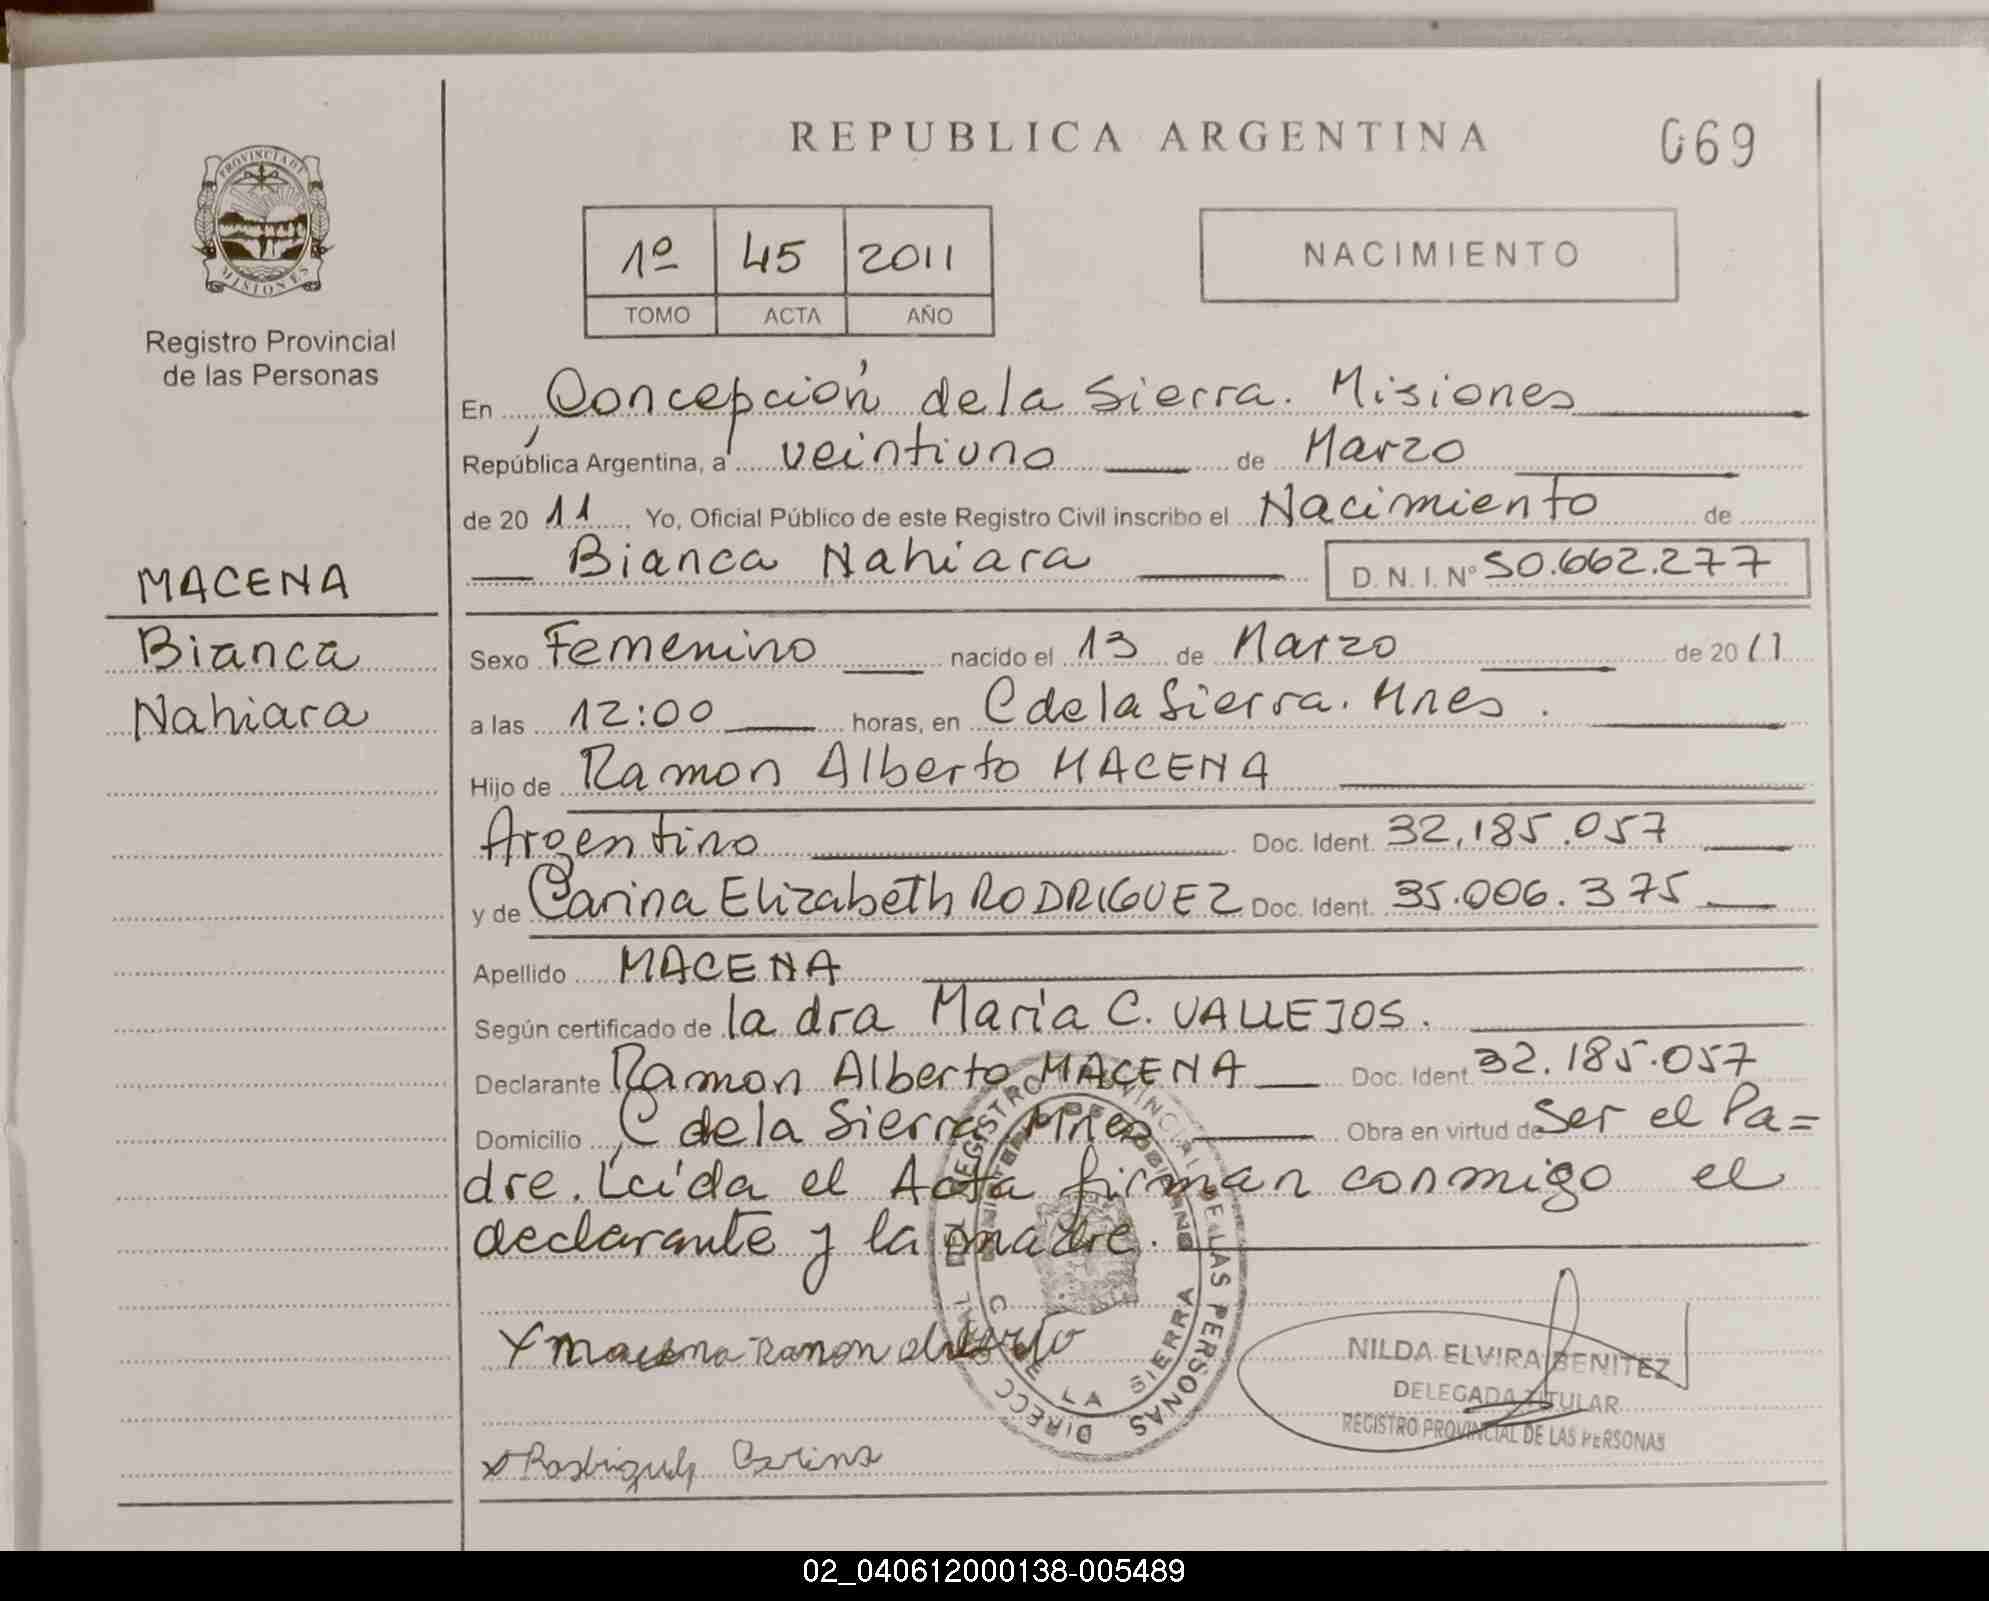 REPUBLICA ARGENTINA
069
PROVINCIA DE
MISIONES
Registro Provincial
de las Personas
1º 45 2011
TOMO ACTA AÑO
NACIMIENTO
En Concepción de la Sierra. Misiones
República Argentina, a veintiuno de Marzo
de 20 11 Yo, Oficial Público de este Registro Civil inscribo el Nacimiento de
Bianca Nahiara D. N. I. Nº 50.662.277
MACENA
Bianca
Nahiara
Sexo Femenino nacido el 13 de Marzo de 20 11
a las 12:00 horas, en C de la Sierra. Mnes.
Hijo de Ramon Alberto MACENA
Argentino Doc. Ident. 32.185.057
y de Carina Elizabeth RODRIGUEZ Doc. Ident. 35.006.375
Apellido MACENA
Según certificado de la dra Maria C. VALLEJOS.
Declarante Ramon Alberto MACENA Doc. Ident. 32.185.057
Domicilio C de la Sierra Mnes Obra en virtud de Ser el Pa=
dre. Leída el Acta firman conmigo el
declarante y la madre.
x Macena Ramon Alberto
x Rodriguez Carina
NILDA ELVIRA BENITEZ
DELEGADA TITULAR
REGISTRO PROVINCIAL DE LAS PERSONAS
DIRECC REGISTRO PROVINCIAL DE LAS PERSONAS
C DE LA SIERRA
02_040612000138-005489